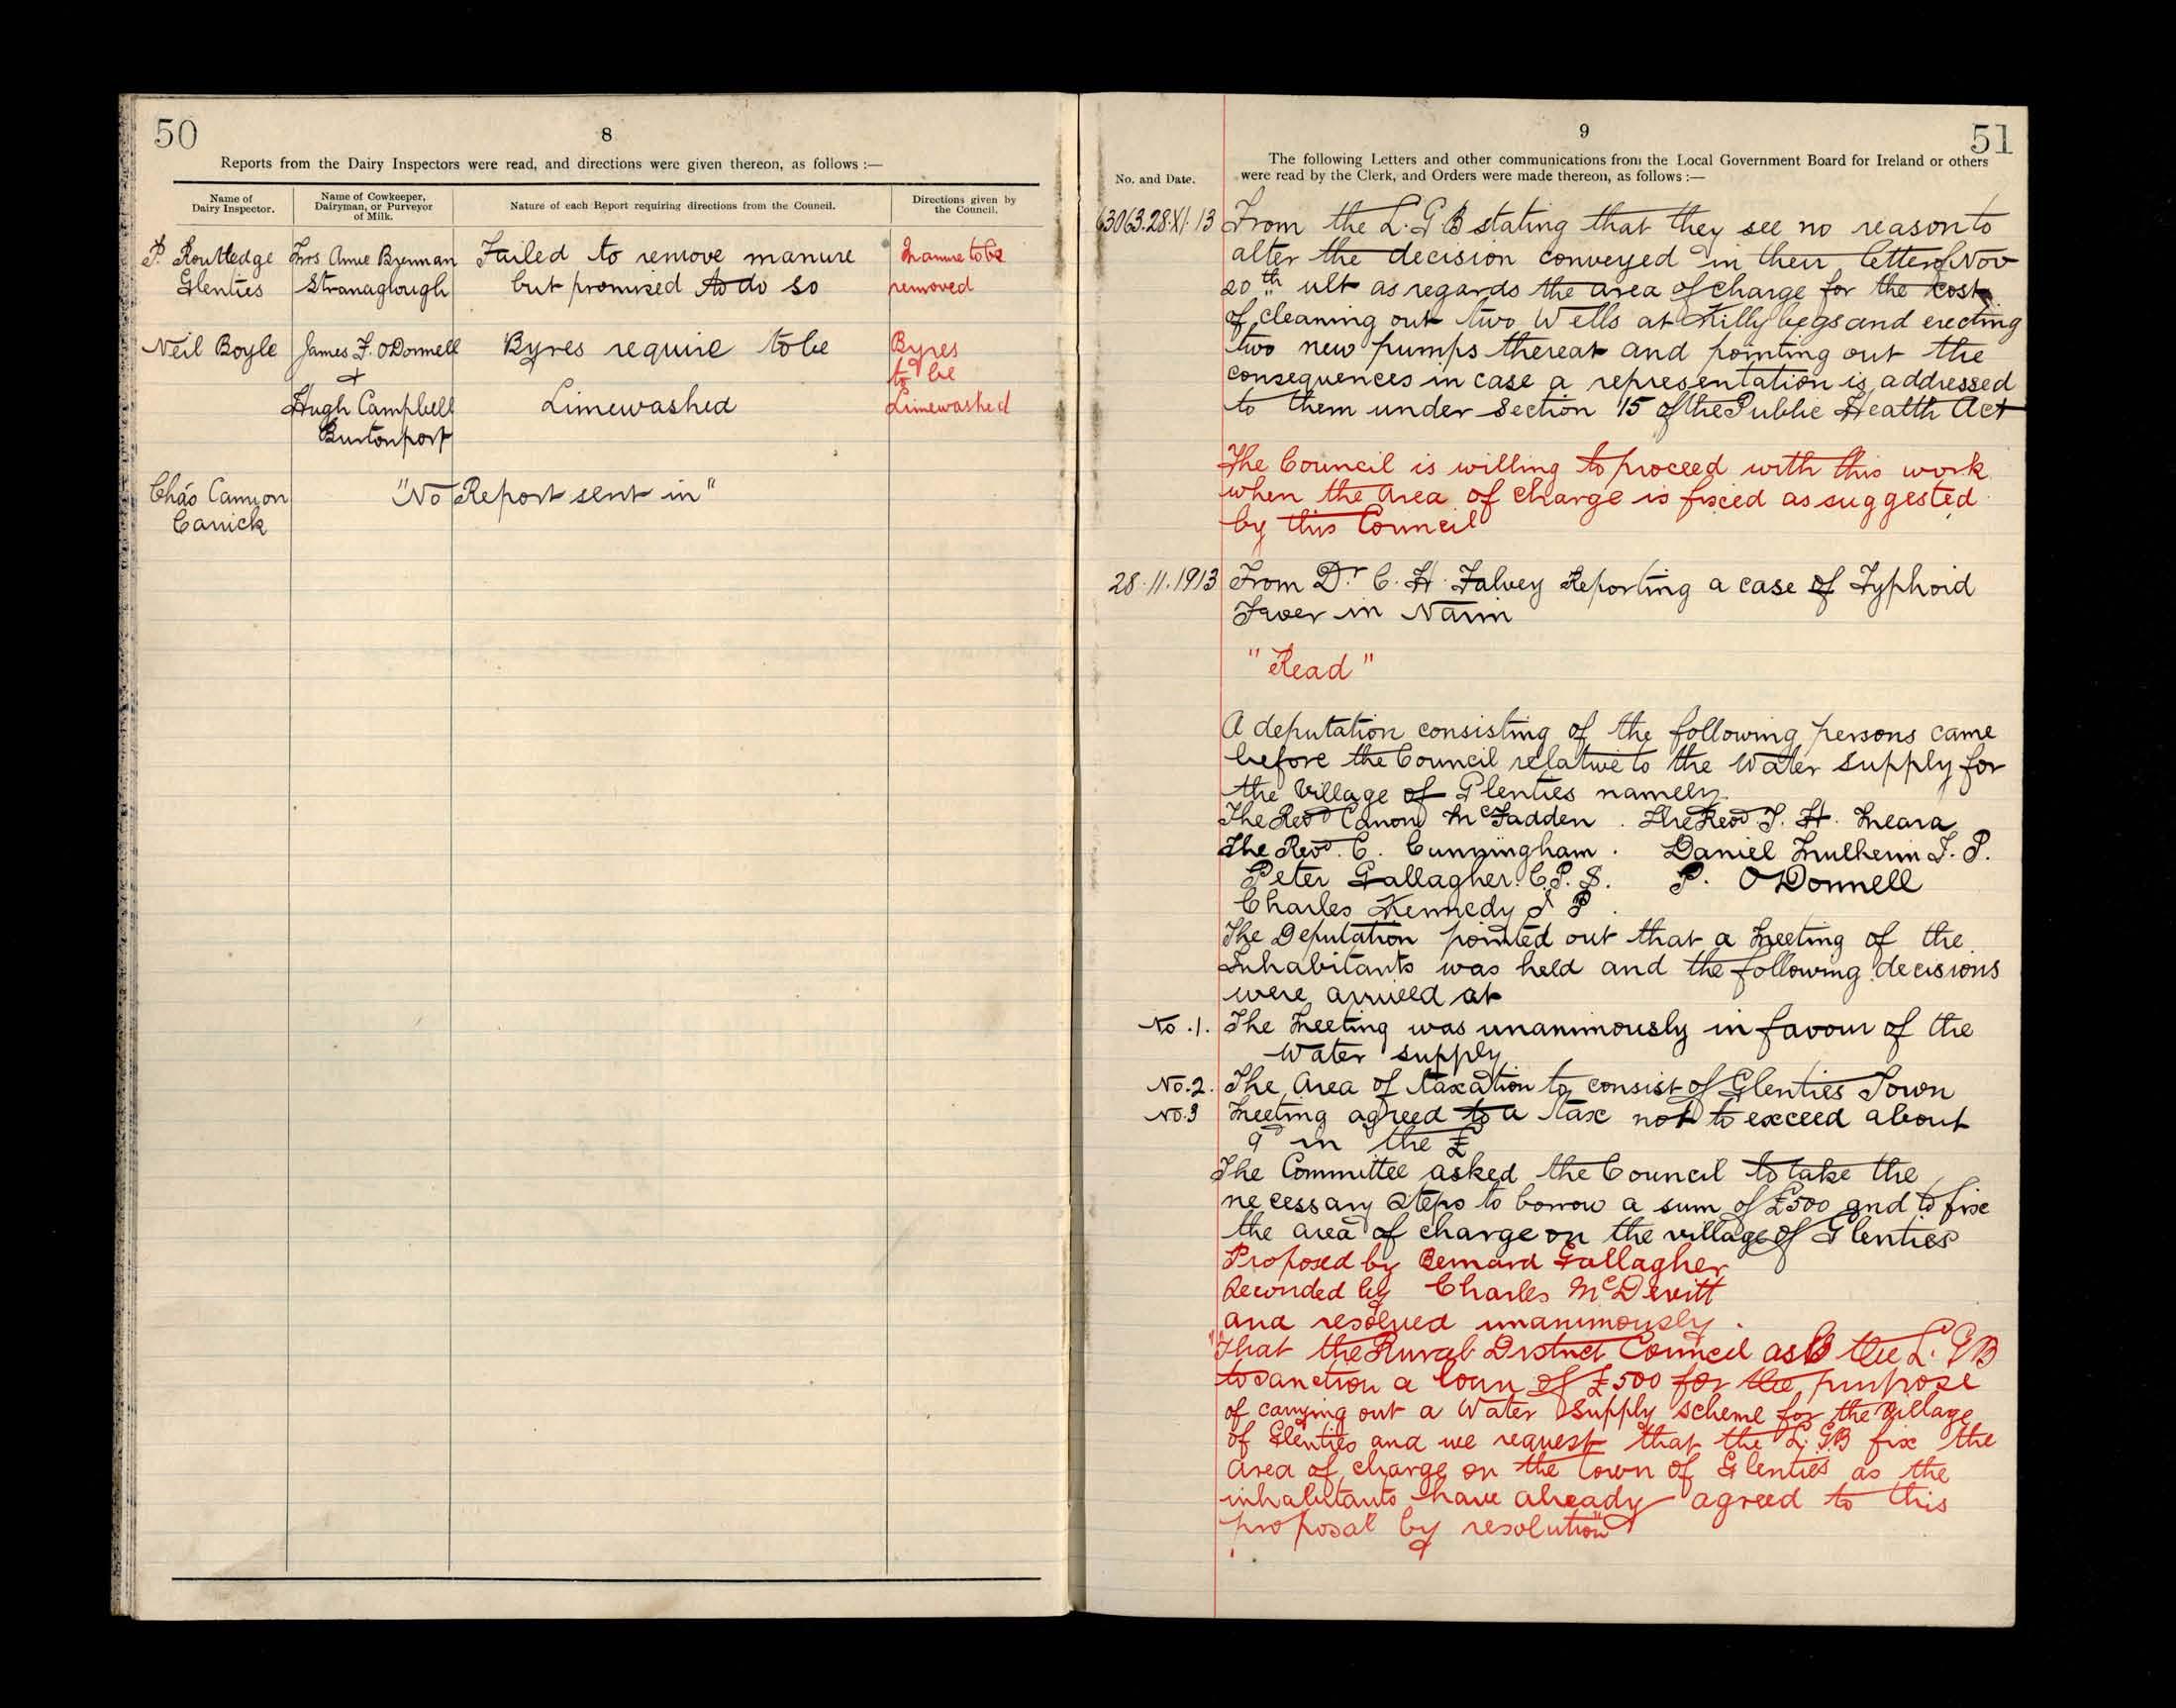 50
8
Reports from the Dairy Inspectors were read, and directions were given thereon, as follows :—
Name of Dairy Inspector.
Name of Cowkeeper, Dairyman, or Purveyor of Milk.
Nature of each Report requiring directions from the Council.
Directions given by the Council.
P. Routledge Mrs Annie Brennan Failed to remove manure Manure to be
Glenties Stranaglough but promised to do so removed
Neil Boyle James F. O'Donnell Byres require to be Byres
& to be
Hugh Campbell Limewashed Limewashed
Burtonport
Chas Cannon "No Report sent in"
Carrick
9
51
No. and Date.
The following Letters and other communications from the Local Government Board for Ireland or others
were read by the Clerk, and Orders were made thereon, as follows :—
63063.28.XI.13 From the L.G B stating that they see no reason to
alter the decision conveyed in their letter of Nov
20th ult as regards the area of charge for the cost
of cleaning out two Wells at Killybegs and erecting
two new pumps thereat and pointing out the
consequences in case a representation is addressed
to them under Section 15 of the Public Health Act
The Council is willing to proceed with this work
when the area of charge is fixed as suggested
by this Council
28.11.1913 From Dr. C. H. Falvey Reporting a case of Typhoid
Fever in Narin
"Read"
A deputation consisting of the following persons came
before the Council relative to the Water Supply for
the Village of Glenties namely
The Revd Canon McFadden . The Revd J. H. Meara
The Revd. C. Cunningham . Daniel Mulhern J. P.
Peter Gallagher. C.P.S. P. O'Donnell
Charles Kennedy J P .
The Deputation pointed out that a Meeting of the
Inhabitants was held and the following decisions
were arrived at
No .1. The Meeting was unanimously in favour of the
Water supply
No.2. The Area of taxation to consist of Glenties Town
No.3 Meeting agreed to a tax not to exceed about
9d in the £
The Committee asked the Council to take the
necessary steps to borrow a sum of £500 and to fix
the area of charge on the village of Glenties
Proposed by Bernard Gallagher
Seconded by Charles McDevitt
and resolved unanimously .
"That the Rural District Council ask the L. G B
to sanction a loan of £500 for the purpose
of carrying out a Water Supply scheme for the village
of Glenties and we request that the L. G.B fix the
area of charge on the town of Glenties as the
inhabitants have already agreed to this
proposal by resolution"